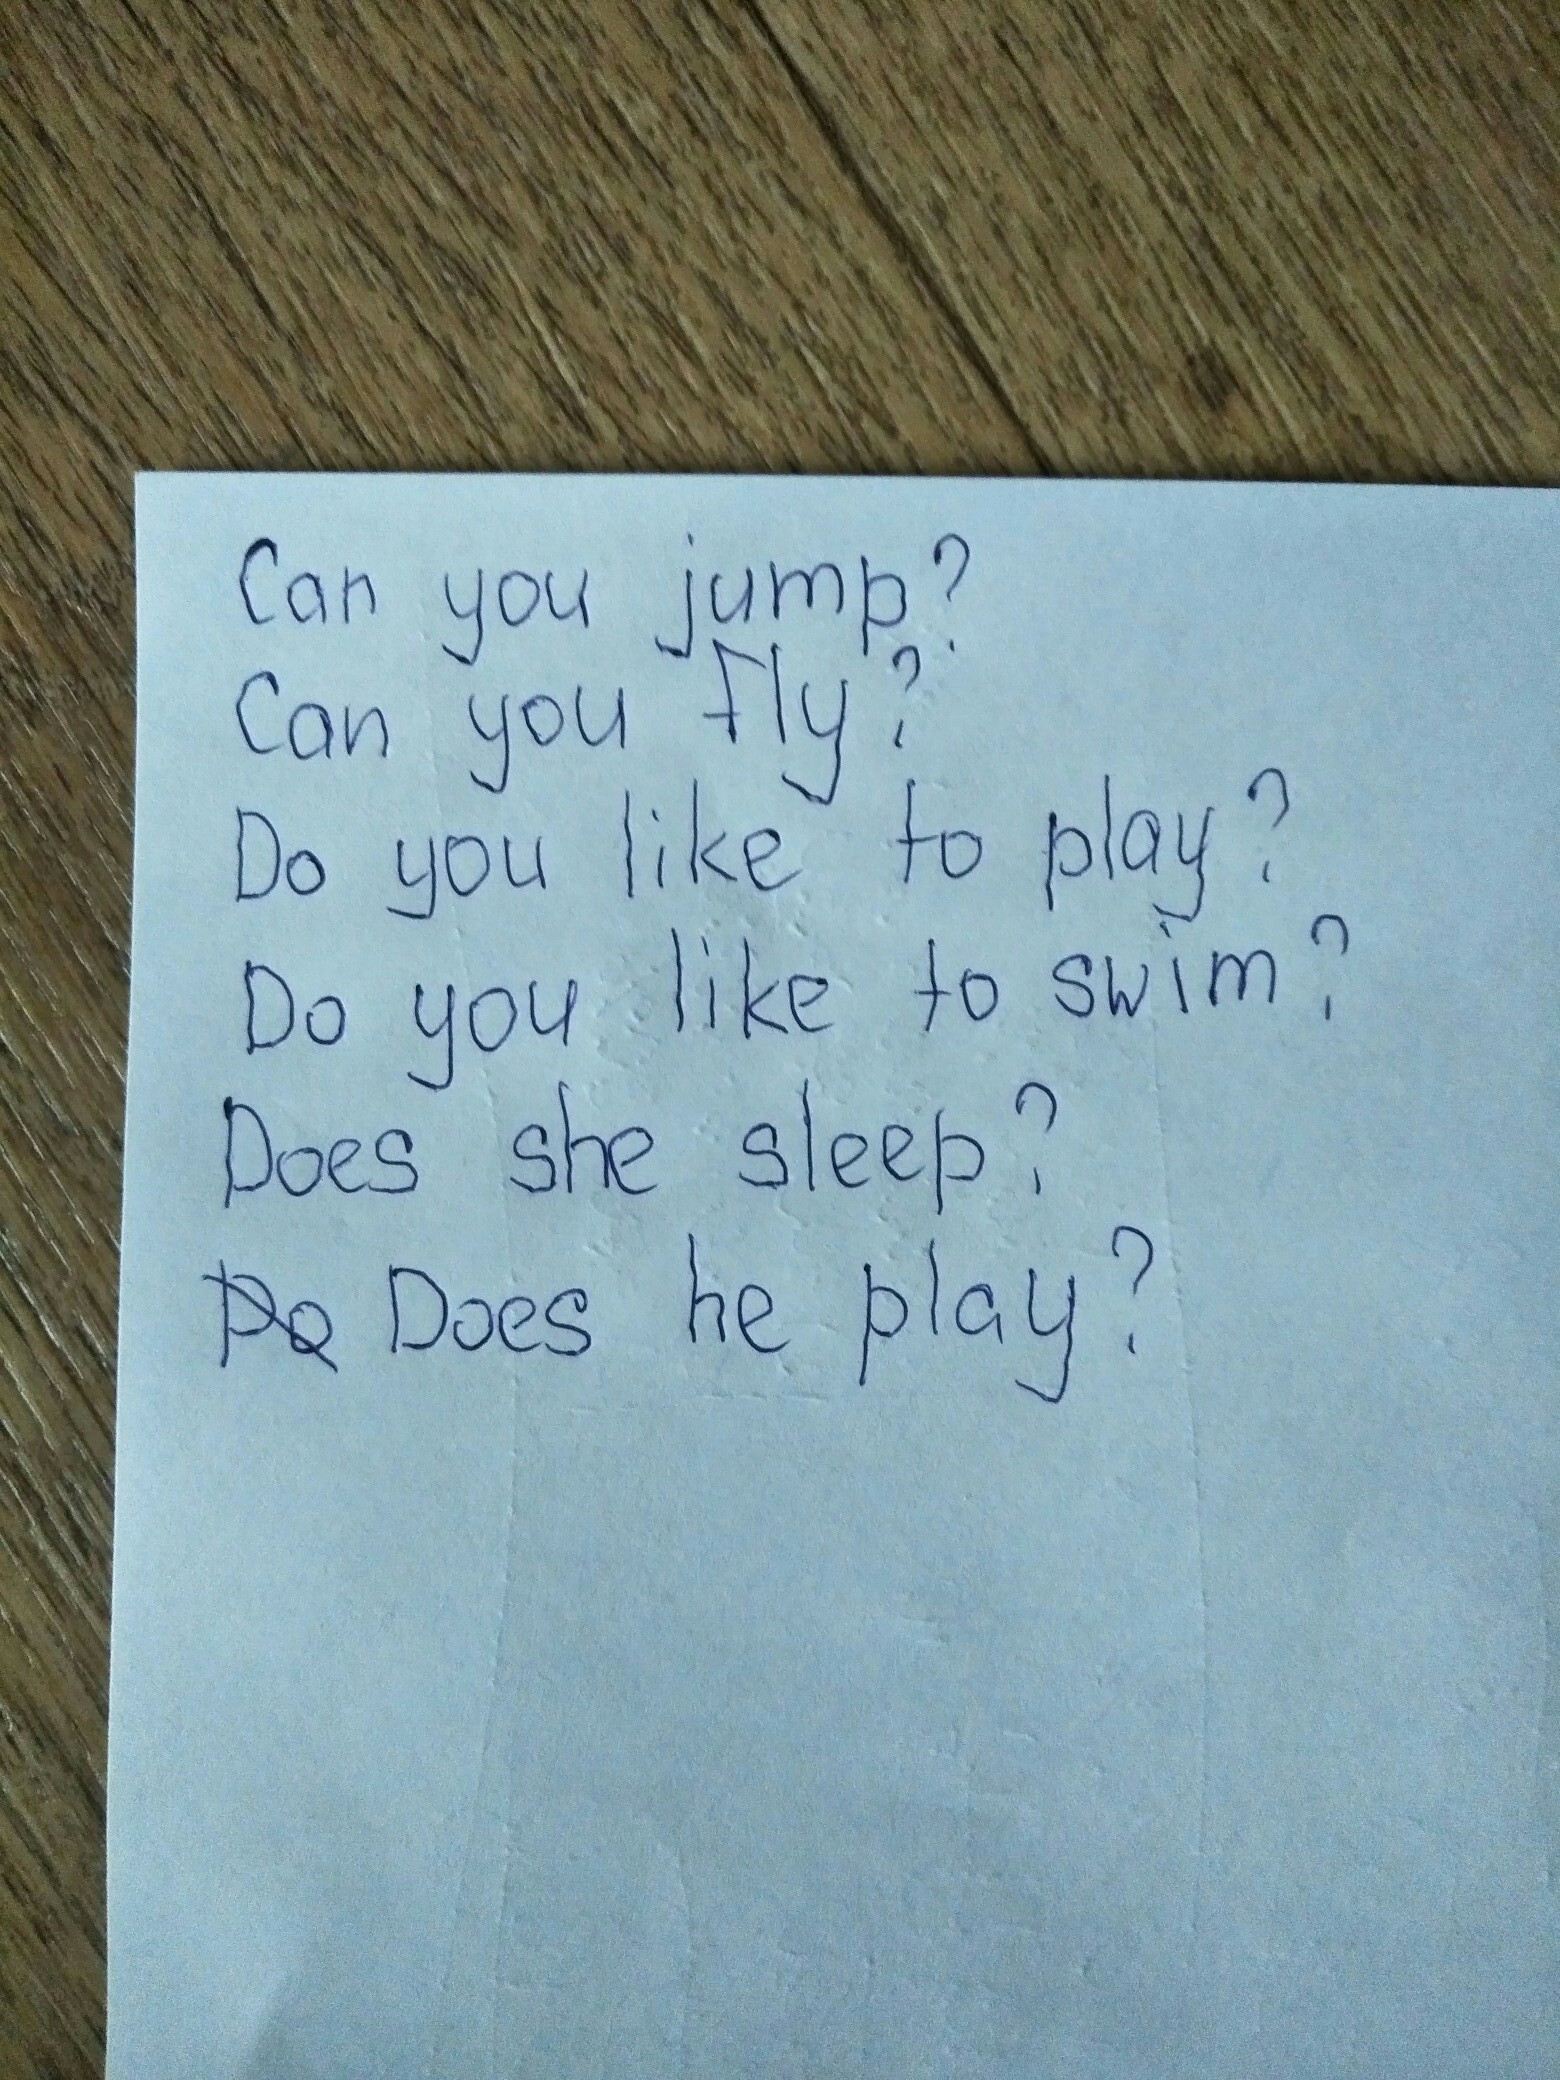 Can you jump?
Can you fly?
Do you like to play?
Do you like to swim?
Does she sleep?
Do Does he play?